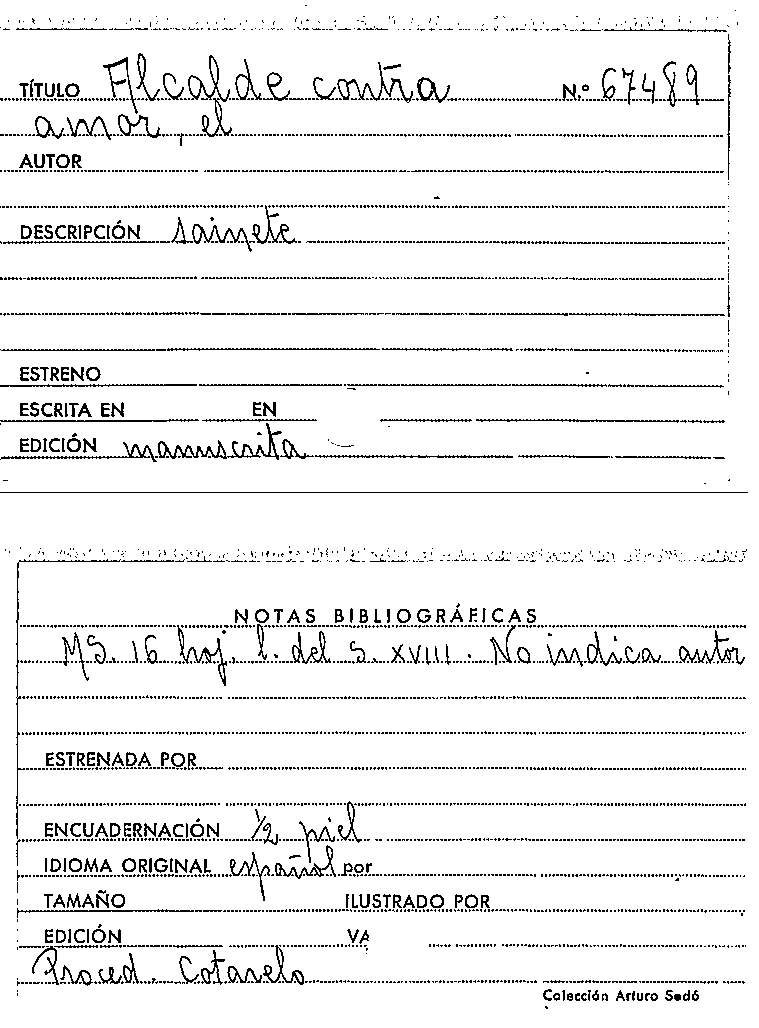 TÍTULO Alcalde contra N.º 67489
amor, el
AUTOR
DESCRIPCIÓN sainete
ESTRENO
ESCRITA EN EN
EDICIÓN manuscrita
NOTAS BIBLIOGRÁFICAS
MS. 16 hoj. l. del S. XVIII. No indica autor
ESTRENADA POR
ENCUADERNACIÓN 1/2 piel
IDIOMA ORIGINAL español por
TAMAÑO ILUSTRADO POR
EDICIÓN VA
Proced. Cotarelo
Colección Arturo Sedó